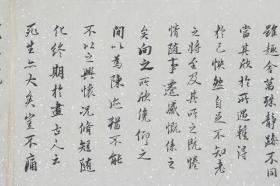 雖趣舍萬殊靜躁不同
當其欣於所遇蹔得
於己怏然自足不知老
之將至及其所之既惓
情隨事遷感慨係之
矣向之所欣俛仰之
間以為陳迹猶不能
不以之興懷況脩短隨
化終期於盡古人云
死生亦大矣豈不痛